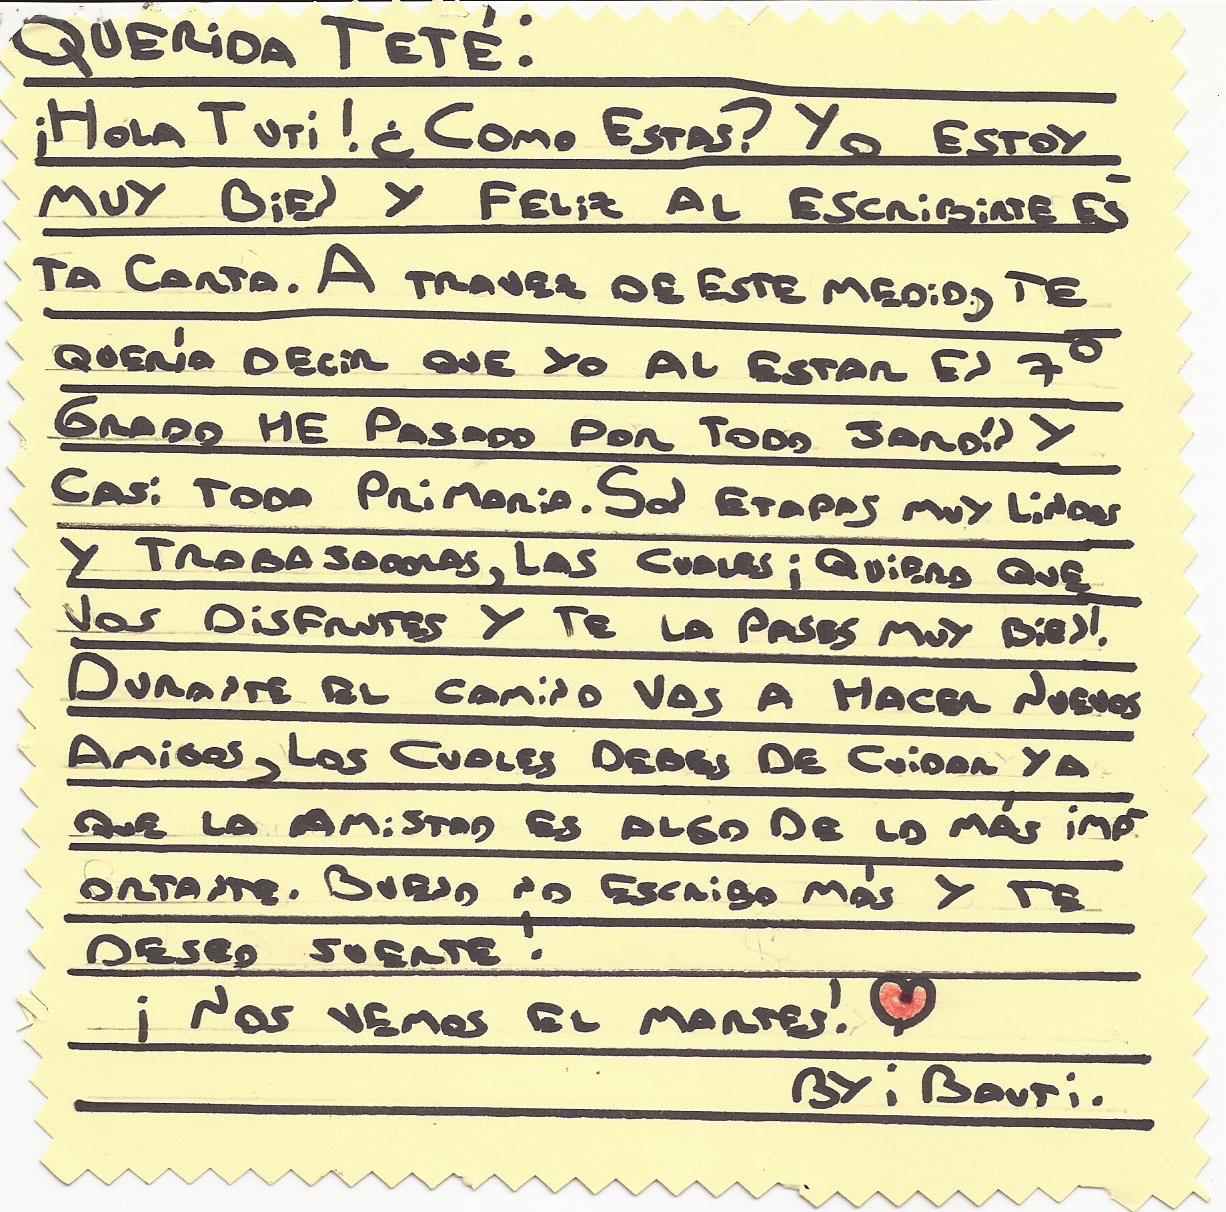 QUERIDA TETÉ:
¡HOLA TUTI! ¿COMO ESTAS? YO ESTOY
MUY BIEN Y FELIZ AL ESCRIBIRTE ES-
TA CARTA. A TRAVEZ DE ESTE MEDIO, TE
QUERÍA DECIR QUE YO AL ESTAR EN 7º
GRADO HE PASADO POR TODO JARDÍN Y
CASI TODA PRIMARIA. SON ETAPAS MUY LINDAS
Y TRABAJADORAS, LAS CUALES ¡QUIERO QUE
VOS DISFRUTES Y TE LA PASES MUY BIEN!.
DURANTE EL CAMINO VAS A HACER NUEVOS
AMIGOS, LOS CUALES DEBES DE CUIDAR YA
QUE LA AMISTAD ES ALGO DE LO MÁS IMP-
ORTANTE. BUENO NO ESCRIBO MÁS Y TE
DESEO SUERTE!
¡NOS VEMOS EL MARTES!
BY: BAUTI.